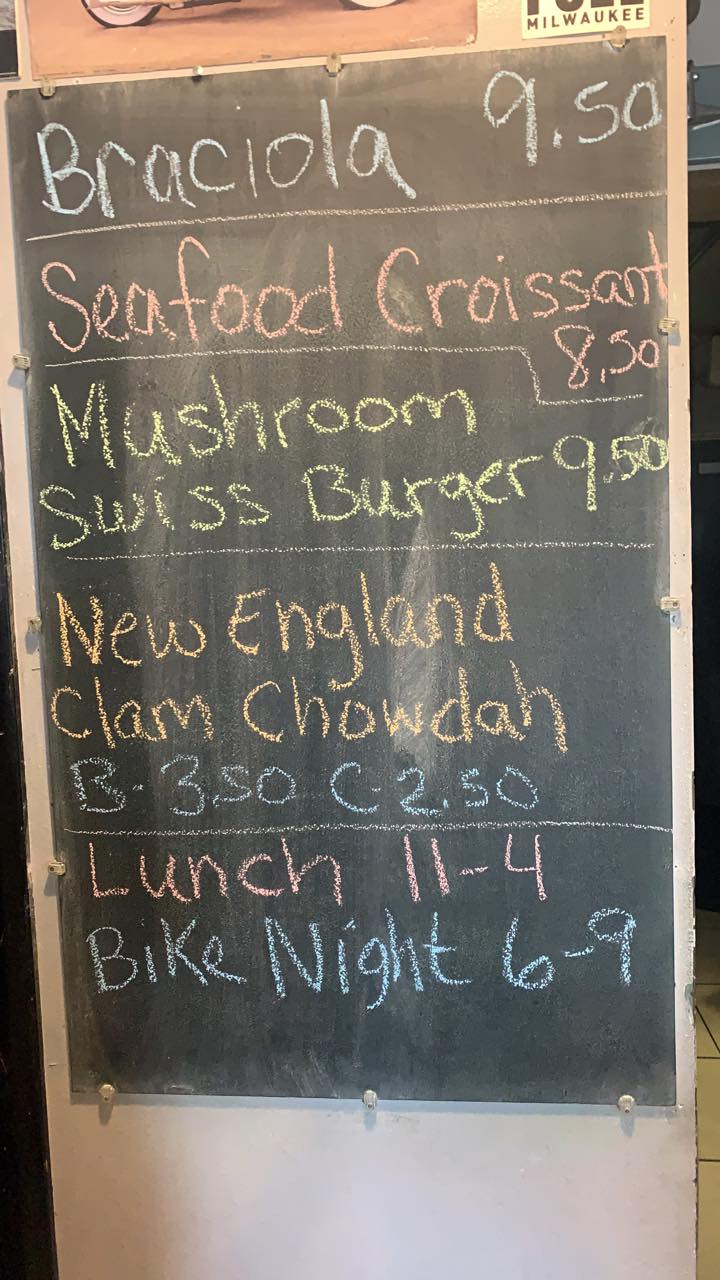 MILWAUKEE
Braciola 9.50
Seafood Croissant
8.50
Mushroom
Swiss Burger 9.50
New England
Clam Chowdah
B- 3.50 C- 2.50
Lunch 11-4
Bike Night 6-9